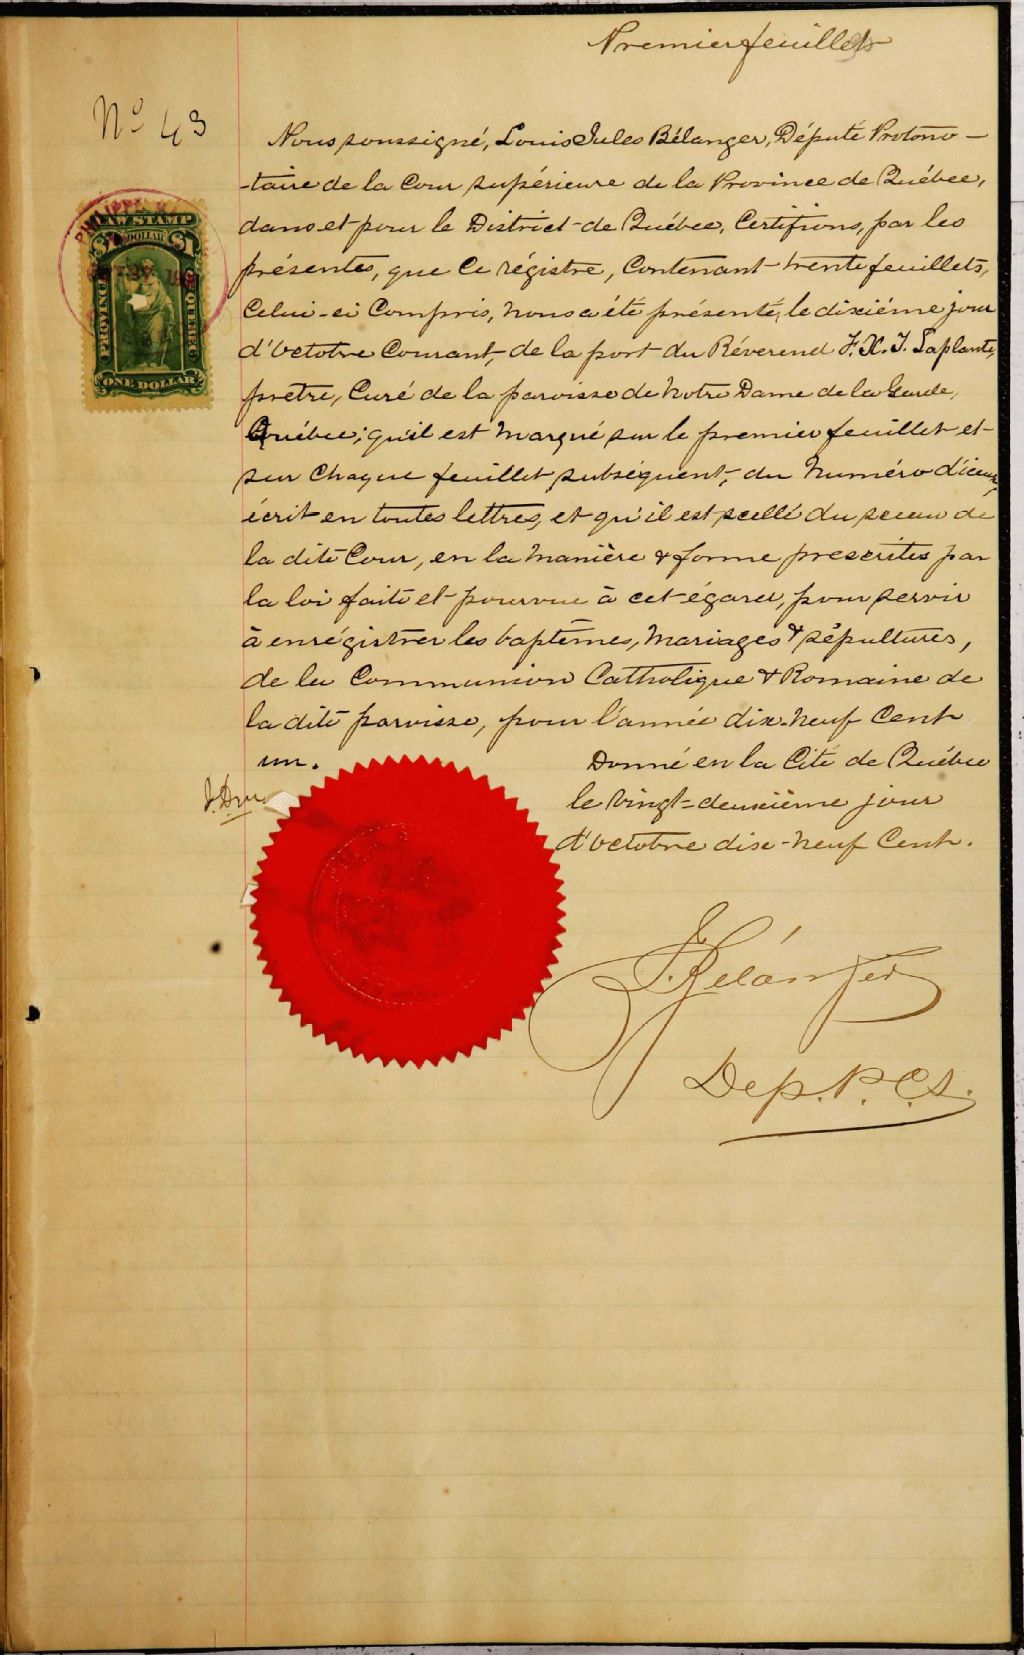 Premier feuillet
No 43
Nous soussigné, Louis Jules Bélanger, Député Protono-
-taire de la Cour supérieure de la Province de Québec,
dans et pour le District de Québec, Certifions, par les
présentes, que ce régistre, Contenant trente feuillets,
Celui-ci Compris, nous a été présenté, le dixième jour
d'Octobre Courant, de la part du Réverend F. X. J. Laplante,
prêtre, Curé de la paroisse de Notre Dame de la Garde,
Québec; qu'il est Marqué sur le premier feuillet et
sur Chaque feuillet subséquent, du Numéro d'iceux,
écrit en toutes lettres, et qu'il est scellé du sceau de
la dite Cour, en la Manière & forme prescrites par
la loi faite et pourvue à cet égard, pour servir
à enrégistrer les baptêmes, Mariages & sépultures,
de la Communion Catholique & Romaine de
la dite paroisse, pour l'année dix-neuf Cent
un.
Donné en la Cité de Québec
le Vingt-deuxième jour
d'Octobre dix-neuf Cent.
LAW STAMP
$1 DOLLAR $1
PROVINCE
QUEBEC
ONE DOLLAR
PHILIPPE
Bélanger
Dep. P. C. S.